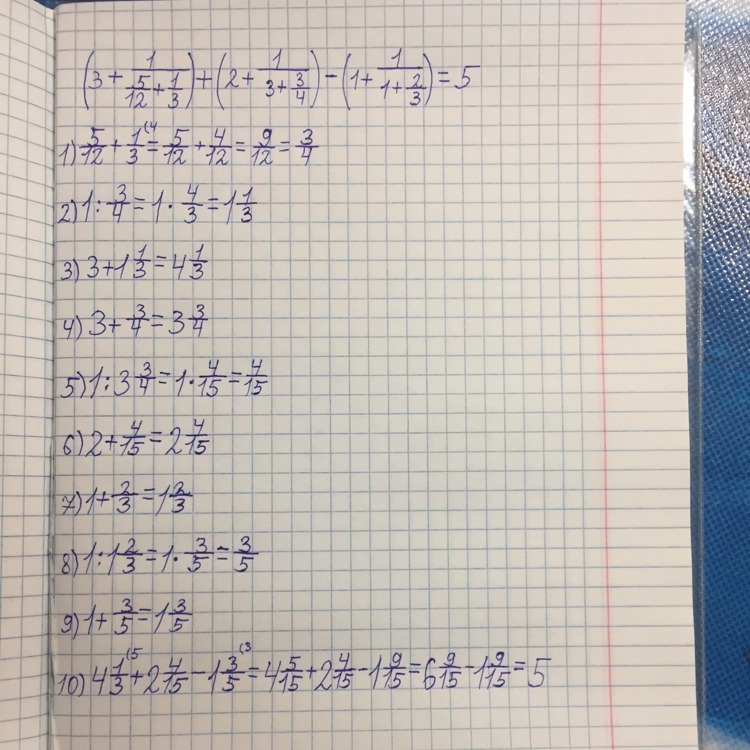 (3 + 1/(5/12 + 1/3)) + (2 + 1/(3 + 3/4)) − (1 + 1/(1 + 2/3)) = 5
1) 5/12 + 1/3 (4 = 5/12 + 4/12 = 9/12 = 3/4
2) 1 : 3/4 = 1 · 4/3 = 1 1/3
3) 3 + 1 1/3 = 4 1/3
4) 3 + 3/4 = 3 3/4
5) 1 : 3 3/4 = 1 · 4/15 = 4/15
6) 2 + 4/15 = 2 4/15
7) 1 + 2/3 = 1 2/3
8) 1 : 1 2/3 = 1 · 3/5 = 3/5
9) 1 + 3/5 = 1 3/5
10) 4 1/3 (5 + 2 4/15 − 1 3/5 (3 = 4 5/15 + 2 4/15 − 1 9/15 = 6 9/15 − 1 9/15 = 5